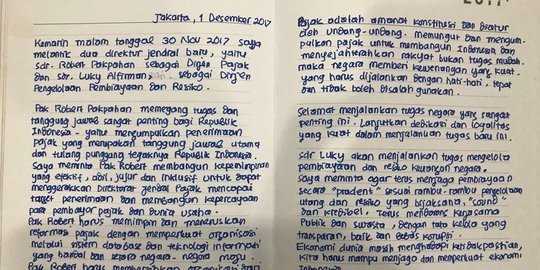 Jakarta, 1 Desember 2017
Kemarin malam tanggal 30 Nov 2017 saya
melantik dua direktur jendral baru, yaitu
sdr. Robert Pakpahan sebagai Dirjen Pajak
dan sdr. Luky Alfirman, sebagai Dirjen
Pengelolaan Pembiayaan dan Resiko.
Pak Robert Pakpahan memegang tugas dan
tanggung jawab sangat penting bagi Republik
Indonesia - yaitu mengumpulkan penerimaan
pajak yang merupakan tanggung jawab utama
dan tulang punggung tegaknya Republik Indonesia.
Saya meminta Pak Robert membangun kepemimpinan
yang efektif, adil, jujur dan inklusif untuk dapat
menggerakkan Direktorat Jendral Pajak mencapai
target penerimaan dan membangun kepercayaan
para pembayar pajak dan dunia usaha.
Pak Robert harus memimpin dan meneruskan
reformasi pajak dengan memperkuat organisasi
melalui sistem database dan teknologi informasi
yang handal dan setara negara-negara maju.
Pak Robert harus membersihkan organisasi dari
2017
Pajak adalah amanat konstitusi dan diatur
oleh undang-undang. Memungut dan mengum-
pulkan pajak untuk membangun Indonesia dan
menyejahterakan rakyat bukan tugas mudah.
maka negara memberi kewenangan yang kuat.
yang harus dijalankan dengan hati-hati, tepat
dan tidak boleh disalah gunakan.
Selamat menjalankan tugas negara yang sangat
penting ini. Lanjutkan dedikasi dan loyalitas
yang kuat dalam menjalankan tugas baru ini.
Sdr Luky akan menjalankan tugas mengelola
pembiayaan dan resiko keuangan negara.
Saya meminta agar terus menjaga pembiayaan
secara "prudent" sesuai rambu-rambu pengelolaan
utang dan resiko yang bijaksana, "sound"
dan kredibel. Terus membangun kerjasama
Publik dan swasta, dengan tata kelola yang
transparan, baik dan bebas korupsi.
Ekonomi dunia masih menghadapi ketidakpastian,
kita harus mampu menjaga dan memperkuat ekonomi
Indonesia